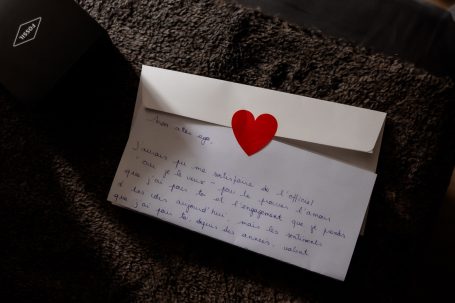 FOSSIL
Mon alter ego,
J'aurais pu me satisfaire de l'officiel
"oui je le veux" pour te prouver l'amour
que j'ai pour toi et l'engagement que je prends
à tes côtés aujourd'hui mais les sentiments
que j'ai pour toi depuis des années valent